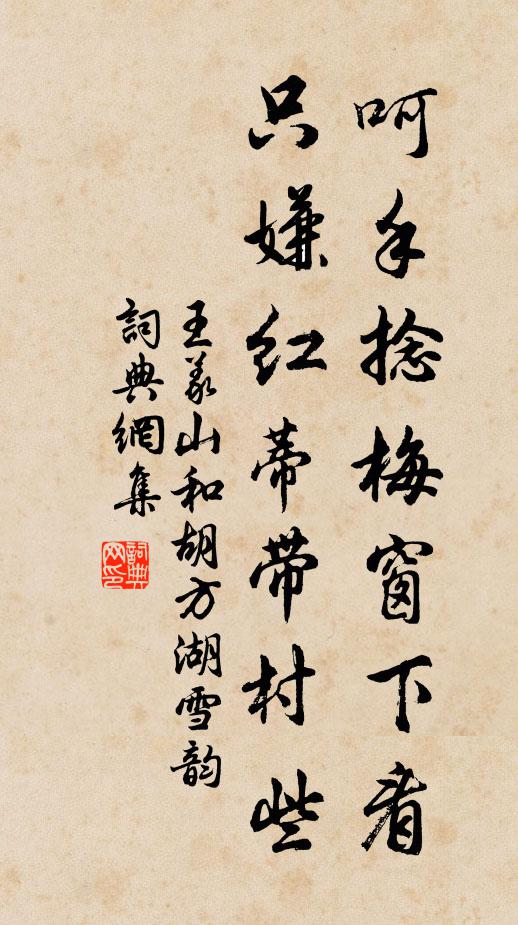 呵手捻梅窗下看
只嫌红蒂带村些
王義山和胡方湖雪韵
詞典網集
詞典网印